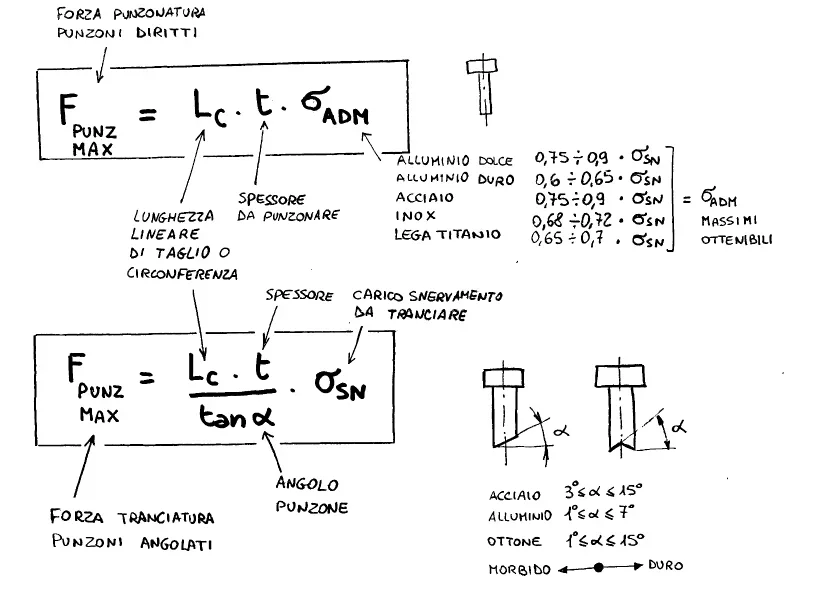 FORZA PUNZONATURA
PUNZONI DIRITTI
F PUNZ MAX = Lc . t . σADM
LUNGHEZZA
LINEARE
DI TAGLIO O
CIRCONFERENZA
SPESSORE
DA PUNZONARE
ALLUMINIO DOLCE 0,75÷0,9 · σSN
ALLUMINIO DURO 0,6÷0,65 · σSN
ACCIAIO 0,75÷0,9 · σSN
INOX 0,68÷0,72 · σSN
LEGA TITANIO 0,65÷0,7 . σSN
= σADM
MASSIMI
OTTENIBILI
SPESSORE
CARICO SNERVAMENTO
DA TRANCIARE
F PUNZ MAX = Lc . t / tan α . σSN
FORZA TRANCIATURA
PUNZONI ANGOLATI
ANGOLO
PUNZONE
α
α
ACCIAIO 3°≤α≤15°
ALLUMINIO 1°≤α≤7°
OTTONE 1°≤α≤15°
MORBIDO DURO